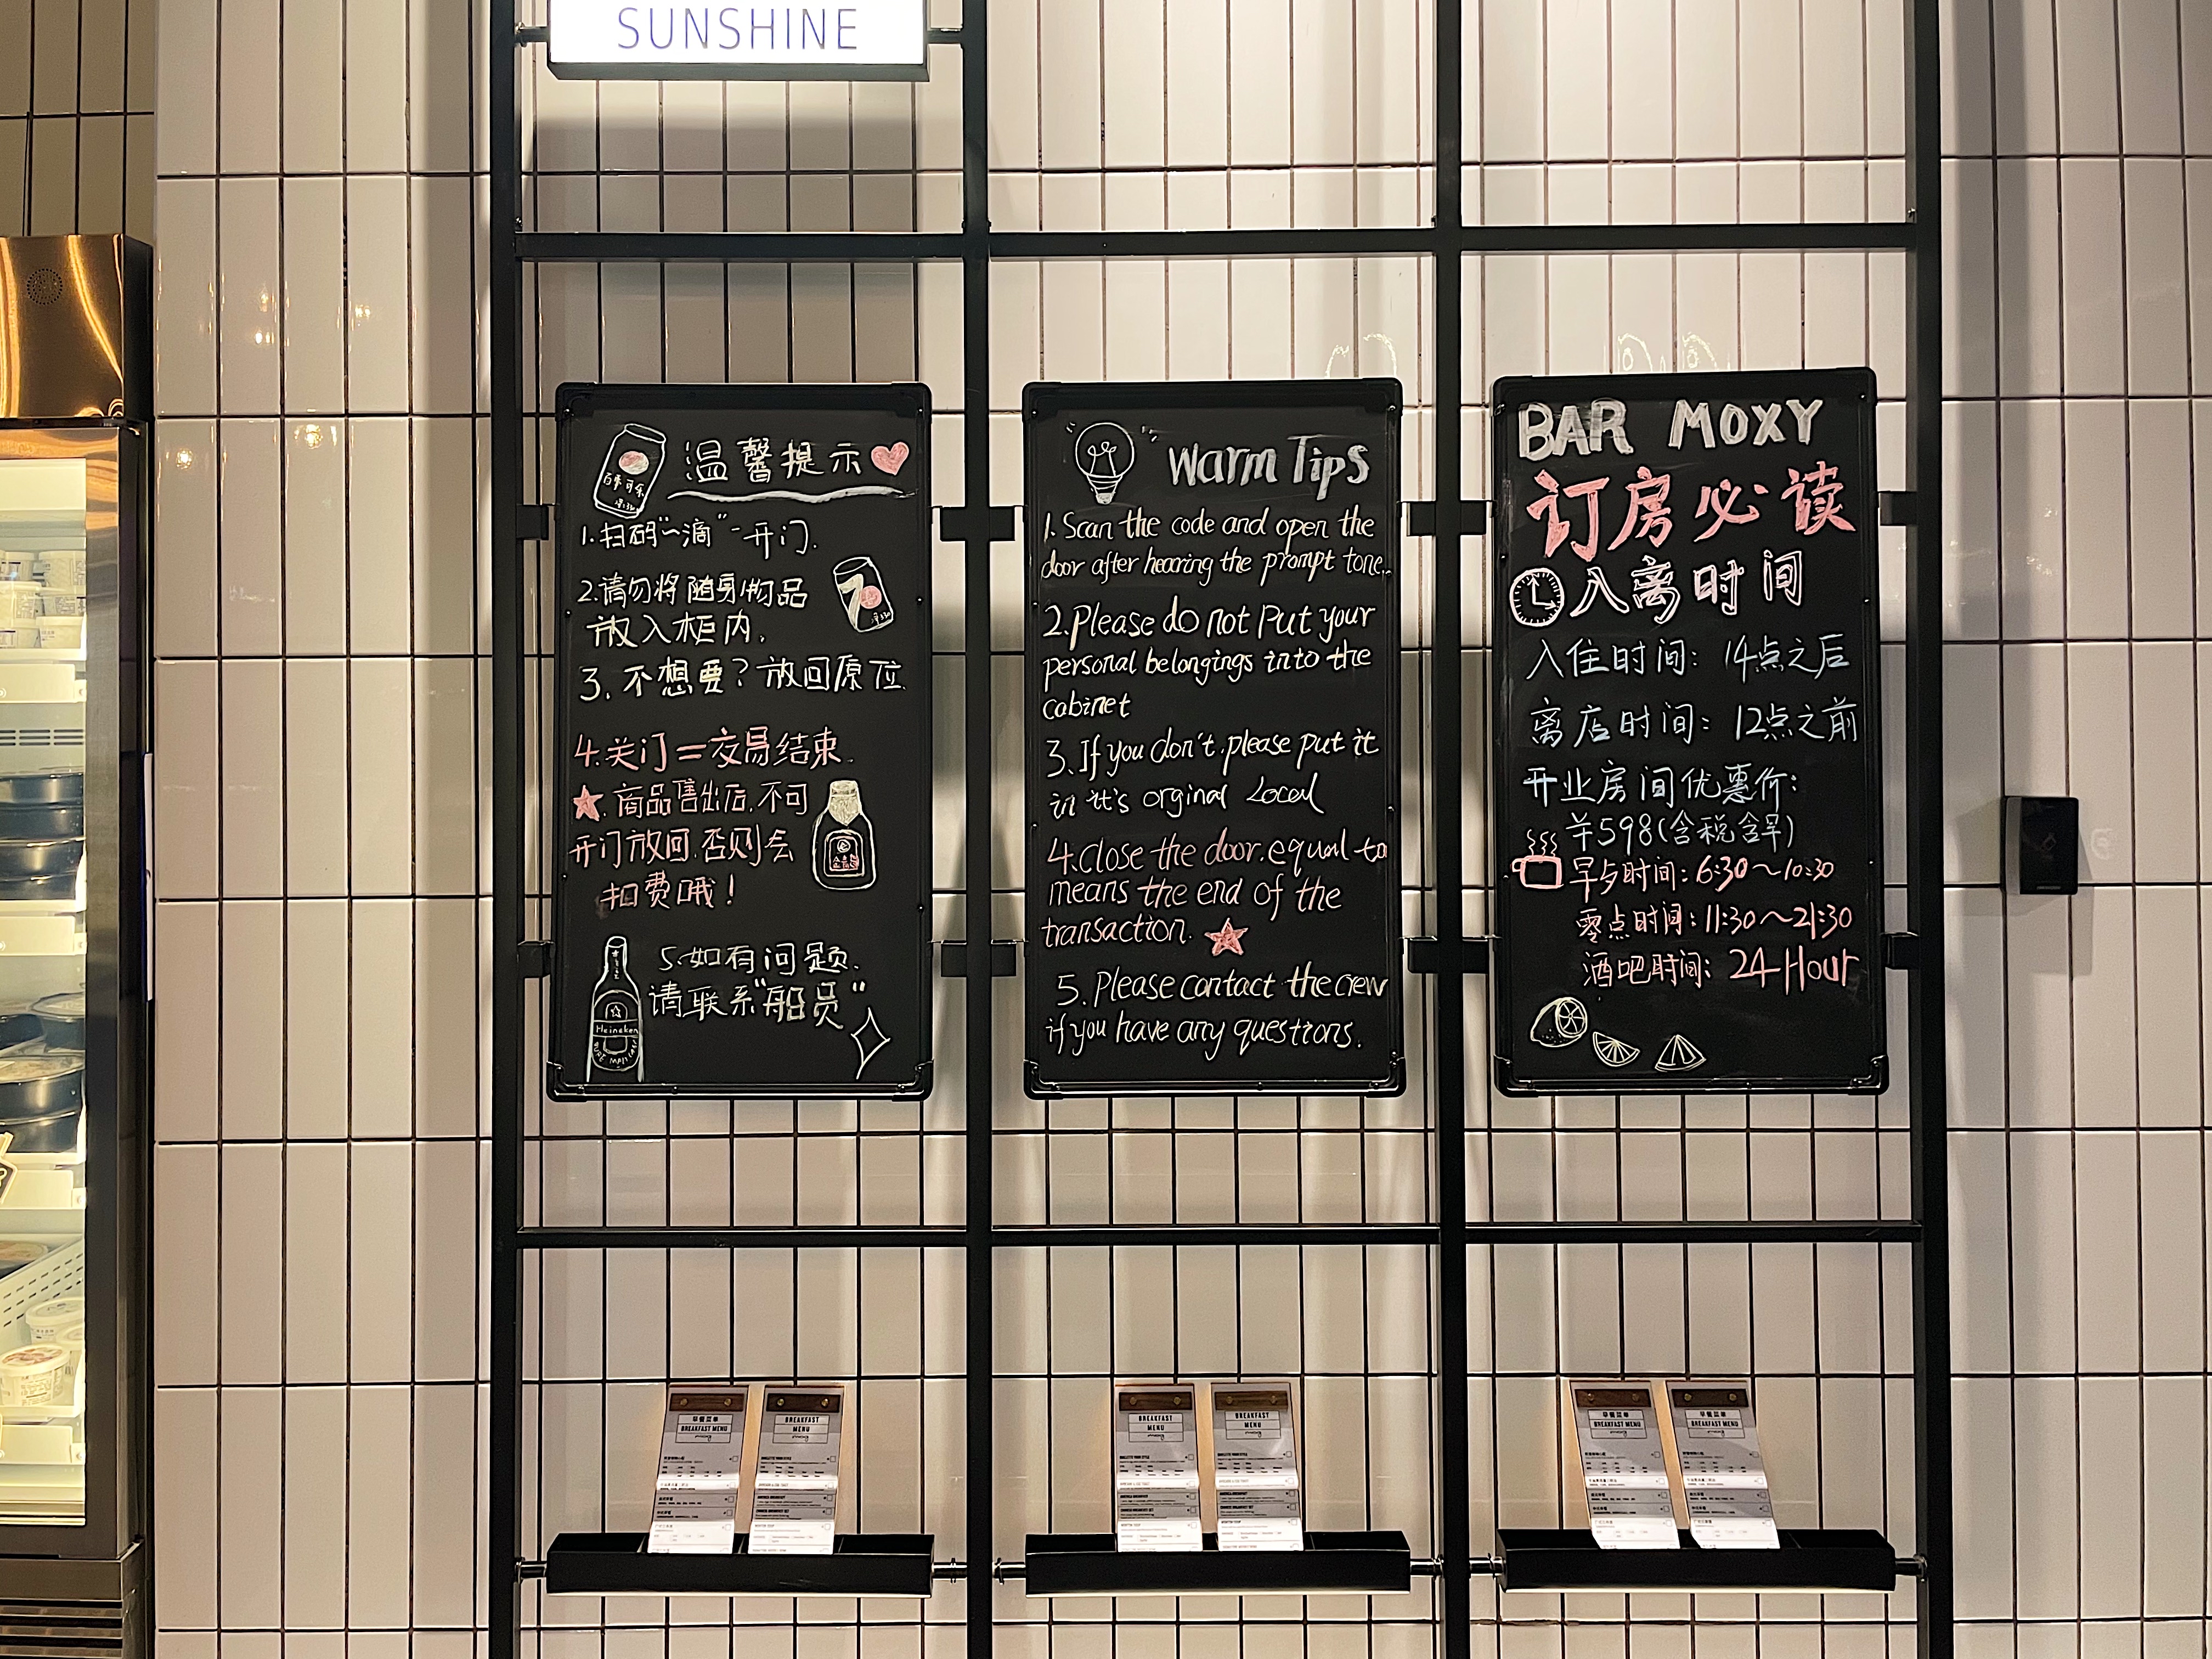 SUNSHINE
温馨提示
百事可乐
1.扫码"~滴"-开门.
2.请勿将随身物品
放入柜内.
7
3.不想要?放回原位.
4.关门=交易结束.
★.商品售出后.不可
开门放回.否则会
扣费哦!
5.如有问题.
请联系"船员"
Heineken
Warm Tips
1.Scan the code and open the
door after hearing the prompt tone.
2.Please do not put your
personal belongings into the
cabinet
3.If you don't.please put it
in it's orginal Local
4.Close the door.equal to
means the end of the
transaction.
5.Please contact the crew
if you have any questions.
BAR MOXY
订房必读
入离时间
入住时间: 14点之后
离店时间: 12点之前
开业房间优惠价:
¥598(含税含早)
早夕时间:6:30~10:30
零点时间:11:30~21:30
酒吧时间: 24Hour
早餐菜单
BREAKFAST MENU
moxy
BREAKFAST
MENU
moxy
BREAKFAST
MENU
moxy
BREAKFAST
MENU
moxy
早餐菜单
BREAKFAST MENU
moxy
早餐菜单
BREAKFAST MENU
moxy